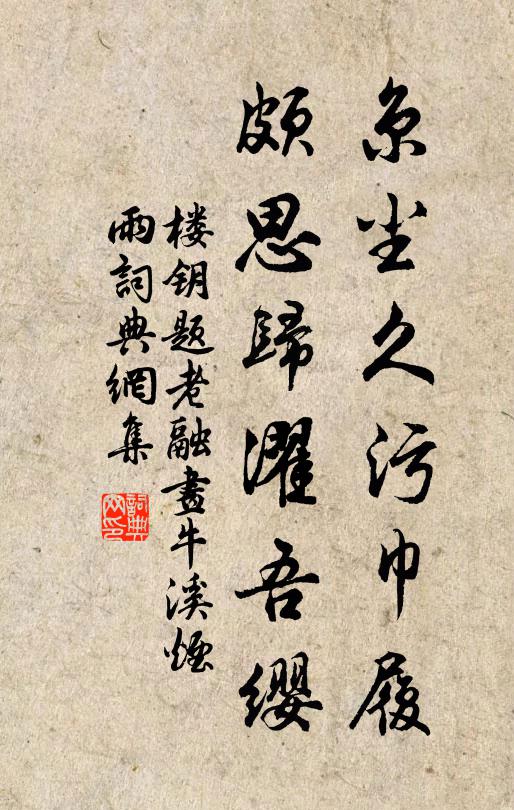 京尘久污巾履
颇思归濯吾缨
楼钥题老融画牛溪烟
雨词典网集
詞典网印